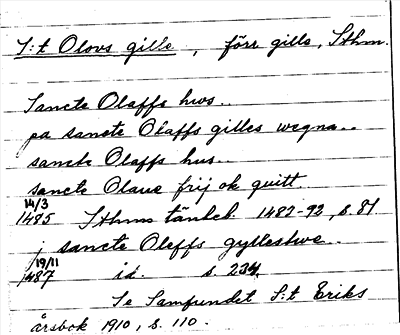 S:t Olovs gille, förr gills, Sthm.
Sancte Olaffs hws..
pa sancte Olaffs gilles wegna..
sancte Olaffs hus..
sancte Olaue frij ok quitt.
14/3
1485 Sthms tänkeb. 1482-92, s. 81
j sancte Oleffs gyllestwe..
19/11
1487 id. s. 234.
Se Samfundet S:t Eriks
årsbok 1910, s. 110.